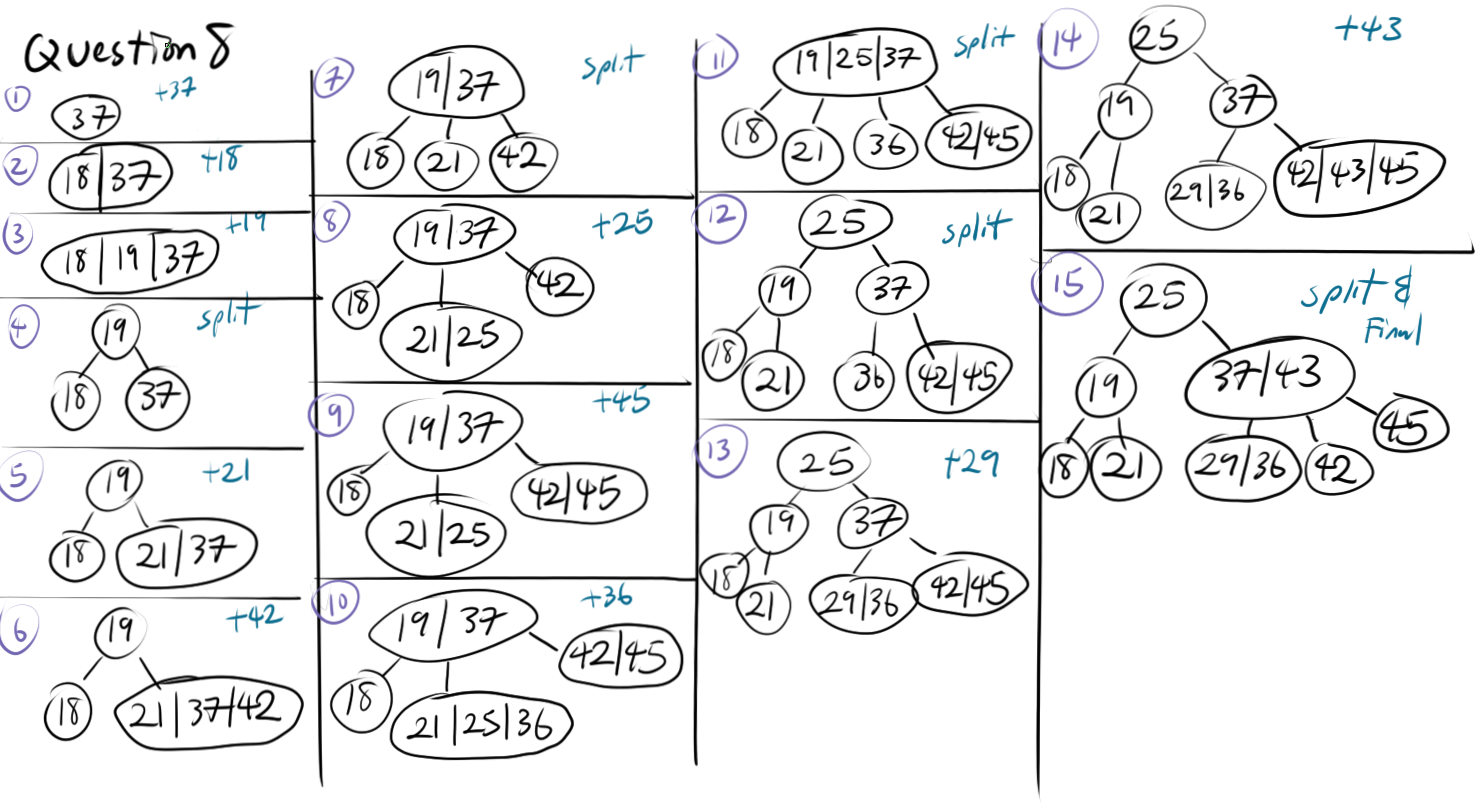 Question 8
① +37
37
② +18
18|37
③ +19
18|19|37
④ split
19
18 37
⑤ +21
19
18 21|37
⑥ +42
19
18 21|37|42
⑦ split
19|37
18 21 42
⑧ +25
19|37
18 21|25 42
⑨ +45
19|37
18 21|25 42|45
⑩ +36
19|37
18 21|25|36 42|45
⑪ split
19|25|37
18 21 36 42|45
⑫ split
25
19 37
18 21 36 42|45
⑬ +29
25
19 37
18 21 29|36 42|45
⑭ +43
25
19 37
18 21 29|36 42|43|45
⑮ split &
Final
25
19 37|43
18 21 29|36 42 45